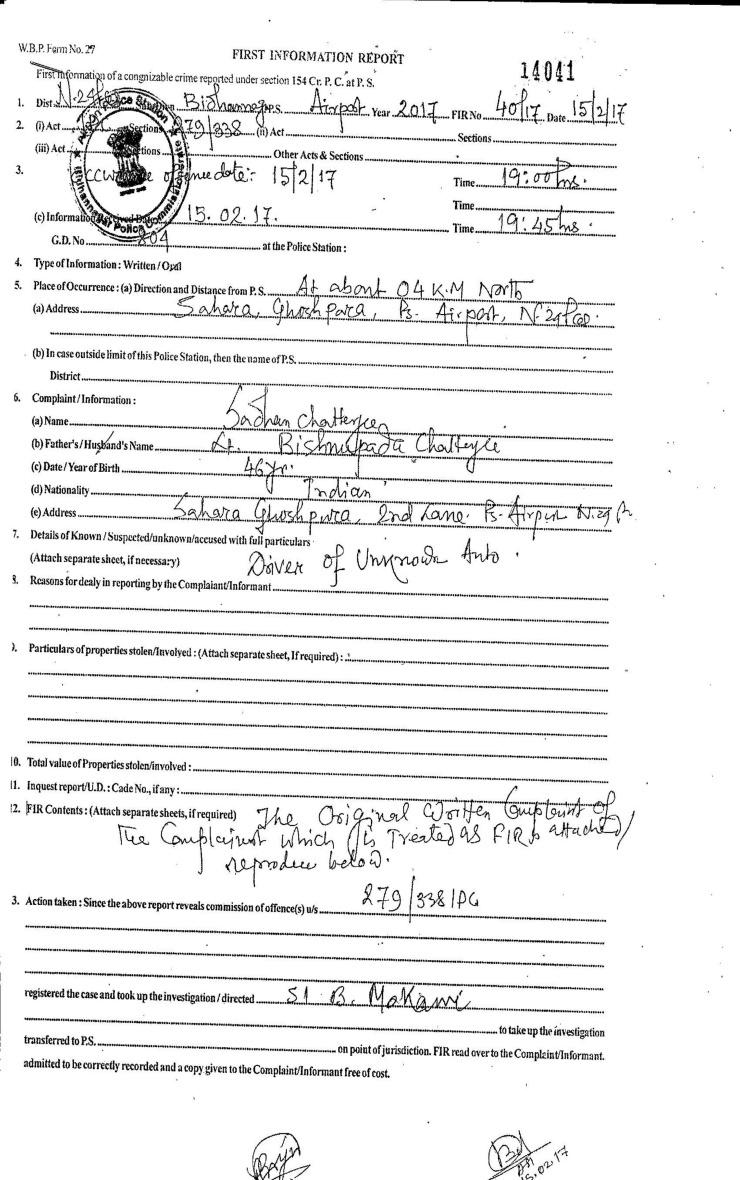 W.B.P. Form No. 27
FIRST INFORMATION REPORT
14041
First Information of a congnizable crime reported under section 154 Cr. P. C. at P. S.
1. Dist. N-24 Bidhannagar P.S. Airport Year 2017 FIR No 40/17 Date 15/2/17
2. (i) Act Sections 279/338 (ii) Act Sections
(iii) Act Sections Other Acts & Sections
3. date:- 15/2/17 Time 19:00 hrs.
Time
(c) Information 15.02.17. Time 19:45 hrs.
G.D. No. 804 at the Police Station :
4. Type of Information : Written / Oral
5. Place of Occurrence : (a) Direction and Distance from P. S. At about 04 K.M North
(a) Address Sahara, Ghoshpara, Ps- Airport, N-24
(b) In case outside limit of this Police Station, then the name of P.S.
District
6. Complaint / Information :
(a) Name Sadhan Chatterjee
(b) Father's / Husband's Name Lt. Bishnupada Chatterjee
(c) Date / Year of Birth 46 yr.
(d) Nationality Indian
(e) Address Sahara Ghoshpara, 2nd Lane. Ps- Airport
7. Details of Known / Suspected/unknown/accused with full particulars
(Attach separate sheet, if necessary) Driver of Unknown Auto.
8. Reasons for dealy in reporting by the Complaiant/Informant
). Particulars of properties stolen/Involyed : (Attach separate sheet, If required) :
10. Total value of Properties stolen/involved :
11. Inquest report/U.D. : Code No., if any :
12. FIR Contents : (Attach separate sheets, if required) The Original Written Complaint of
The Complainant which is Treated as FIR is attached/
reproduce below.
3. Action taken : Since the above report reveals commission of offence(s) u/s 279/338 IPC
registered the case and took up the investigation / directed SI B. Makami
to take up the investigation
transferred to P.S. on point of jurisdiction. FIR read over to the Complaint/Informant.
admitted to be correctly recorded and a copy given to the Complaint/Informant free of cost.
15.02.17